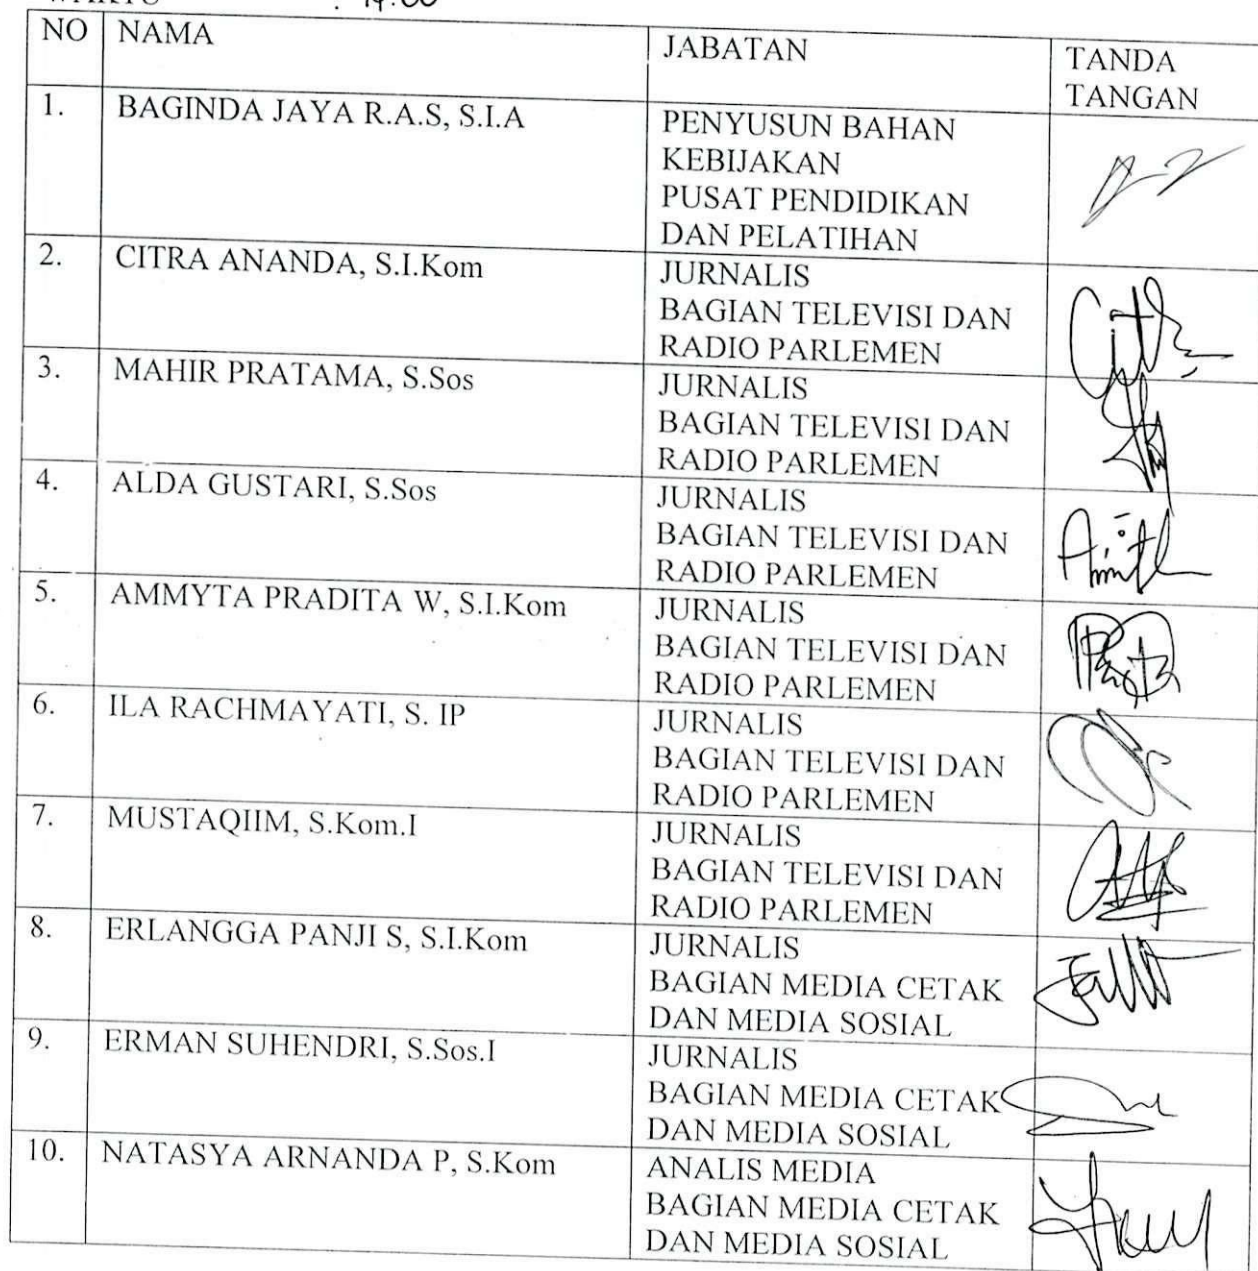 : 14:00
NO NAMA JABATAN TANDA
TANGAN
1. BAGINDA JAYA R.A.S, S.I.A PENYUSUN BAHAN
KEBIJAKAN
PUSAT PENDIDIKAN
DAN PELATIHAN
2. CITRA ANANDA, S.I.Kom JURNALIS
BAGIAN TELEVISI DAN
RADIO PARLEMEN
3. MAHIR PRATAMA, S.Sos JURNALIS
BAGIAN TELEVISI DAN
RADIO PARLEMEN
4. ALDA GUSTARI, S.Sos JURNALIS
BAGIAN TELEVISI DAN
RADIO PARLEMEN
5. AMMYTA PRADITA W, S.I.Kom JURNALIS
BAGIAN TELEVISI DAN
RADIO PARLEMEN
6. ILA RACHMAYATI, S. IP JURNALIS
BAGIAN TELEVISI DAN
RADIO PARLEMEN
7. MUSTAQIIM, S.Kom.I JURNALIS
BAGIAN TELEVISI DAN
RADIO PARLEMEN
8. ERLANGGA PANJI S, S.I.Kom JURNALIS
BAGIAN MEDIA CETAK
DAN MEDIA SOSIAL
9. ERMAN SUHENDRI, S.Sos.I JURNALIS
BAGIAN MEDIA CETAK
DAN MEDIA SOSIAL
10. NATASYA ARNANDA P, S.Kom ANALIS MEDIA
BAGIAN MEDIA CETAK
DAN MEDIA SOSIAL